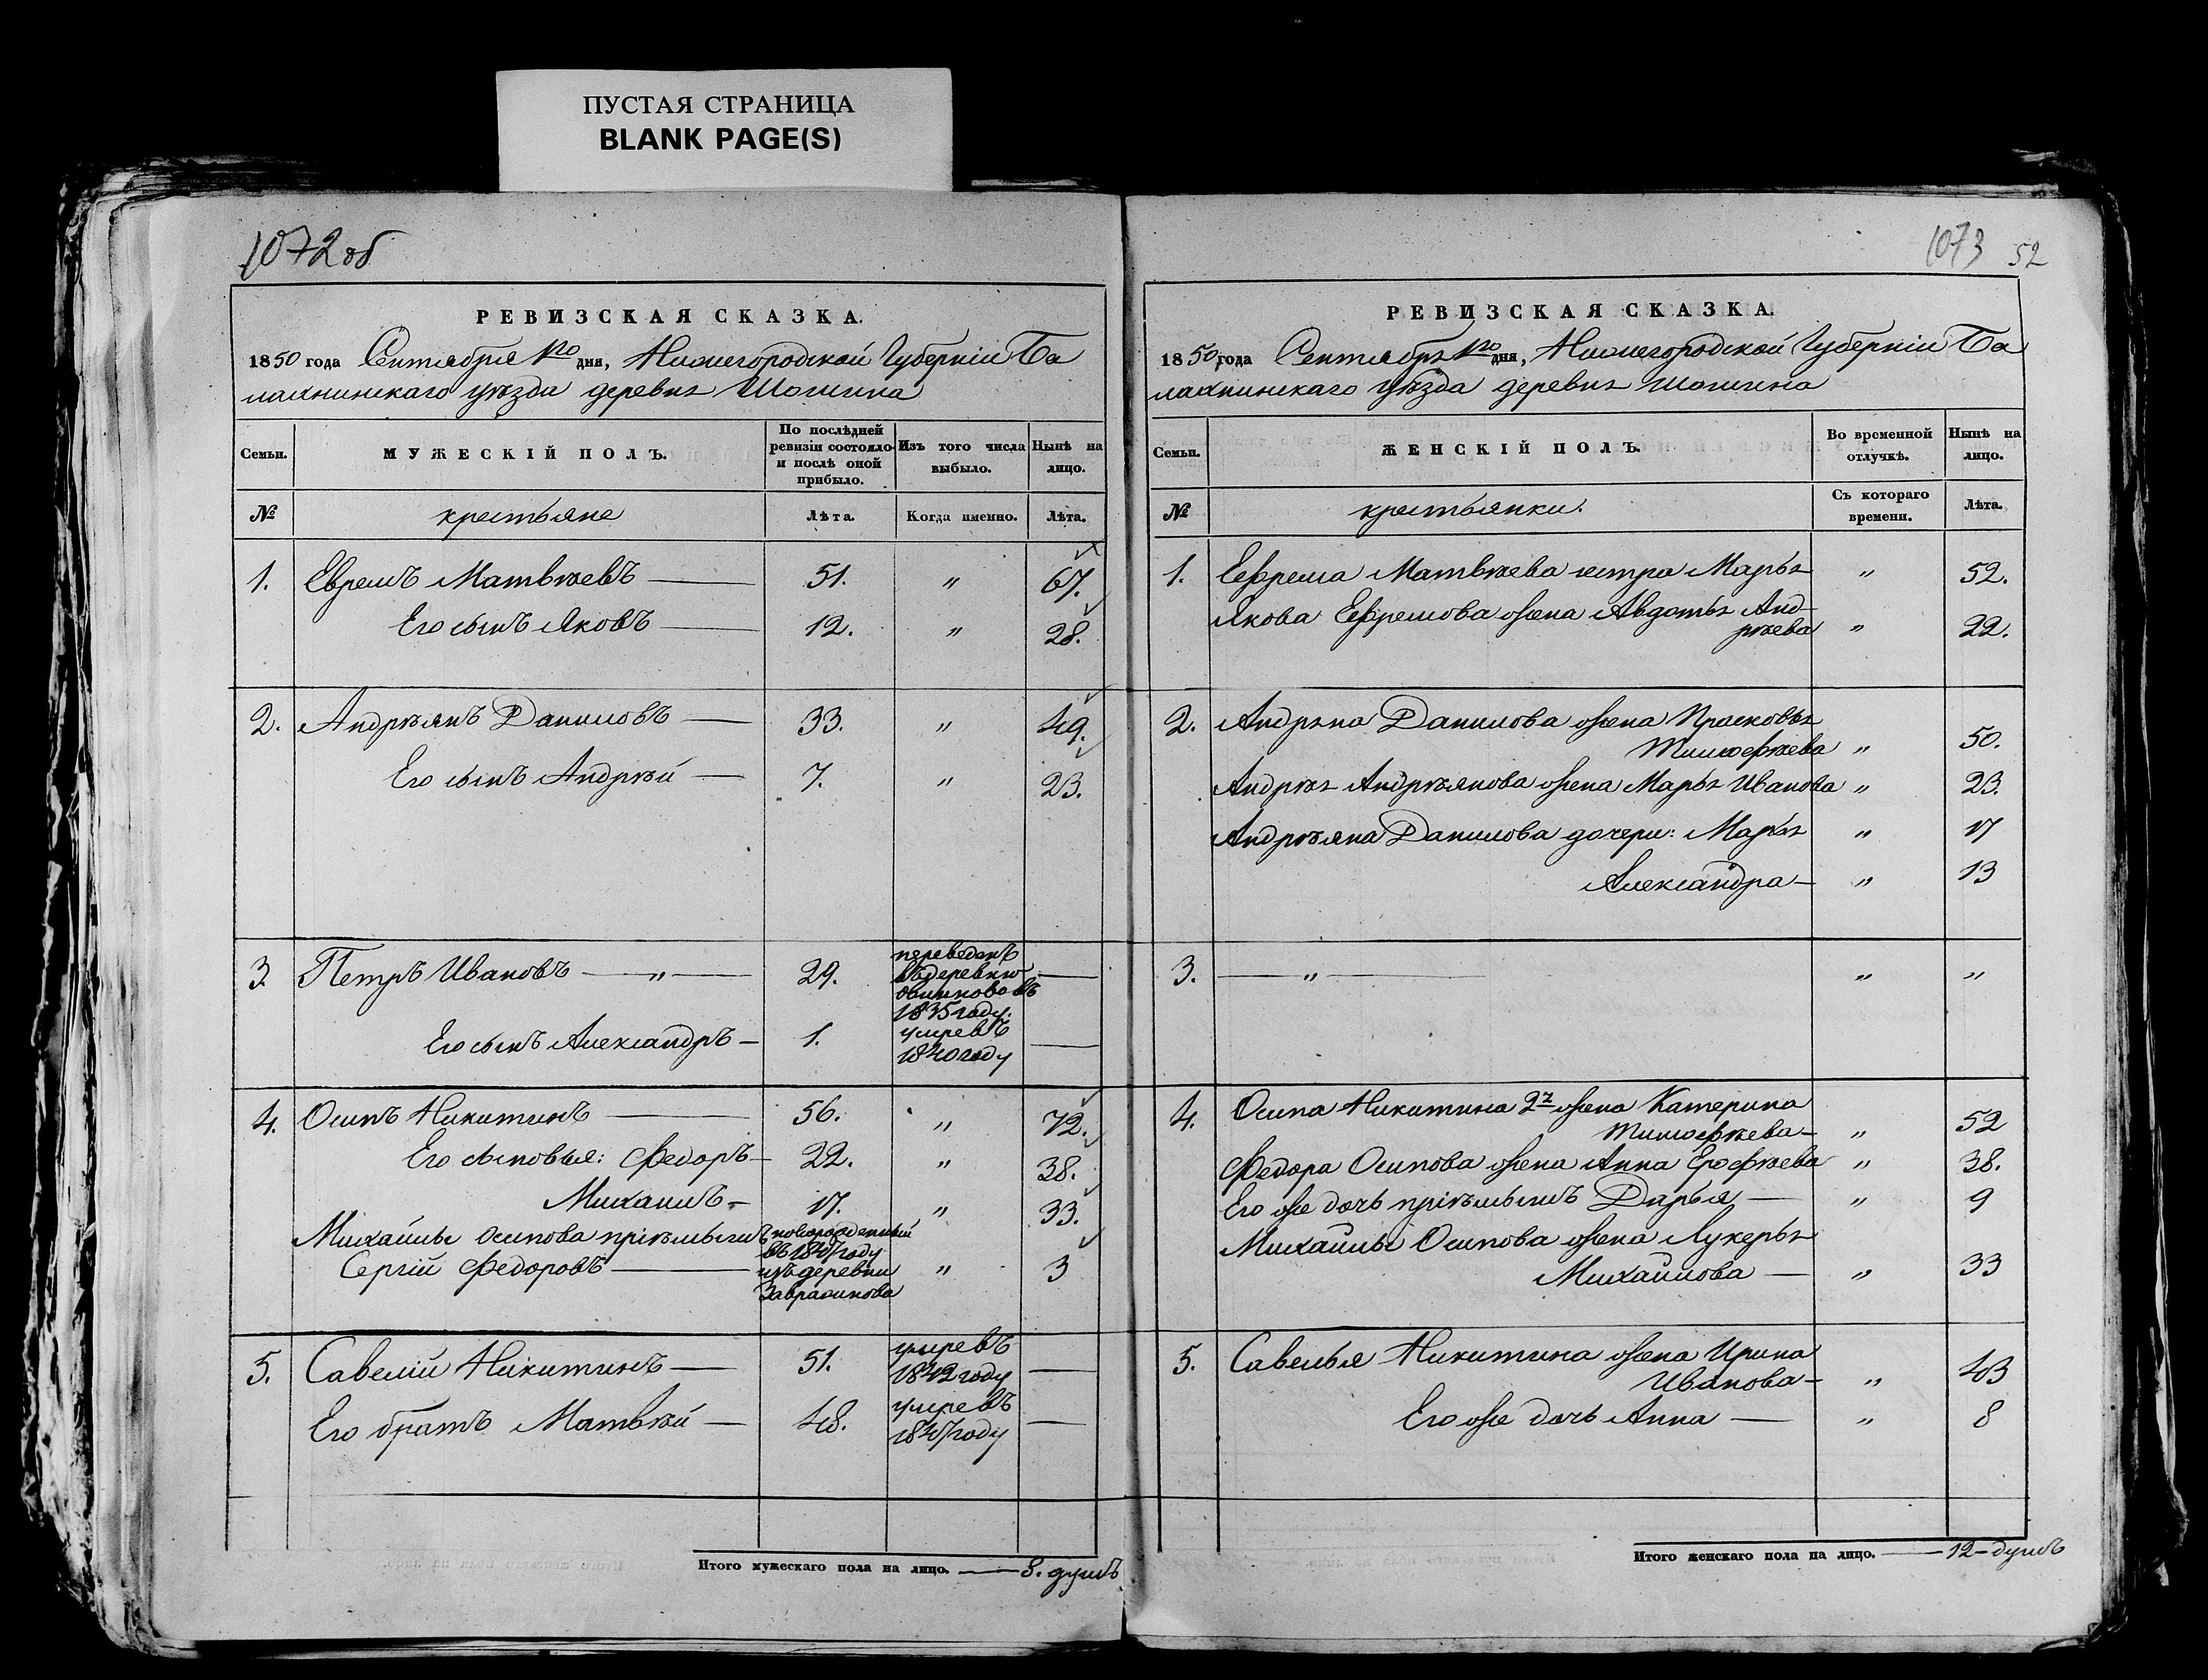 ПУСТАЯ СТРАНИЦА
BLANK PAGE(S)
1072 об
РЕВИЗСКАЯ СКАЗКА.
1850 года Сентября 1го дня, Нижегородской Губерніи Ба
лахнинскаго уѣзда деревнѣ Шошина
Семьи.
МУЖЕСКІЙ ПОЛЪ.
По послѣдней ревизіи состояло и послѣ оной прибыло.
Изъ того числа выбыло.
Нынѣ на лицо.
№
крестьяне
Лѣта.
Когда именно.
Лѣта.
1. Ефремъ Матвѣевъ — 51. " 67.
Его сынъ Яковъ — 12. " 28.
2. Андрѣянъ Даниловъ — 33. " 49.
Его сынъ Андрѣй — 7. " 23.
3. Петръ Ивановъ — " — 29. переведенъ
въ деревню —
овинково въ
1835 году.
Его сынъ Александръ — 1. умревъ —
1840 году
4. Осипъ Никитинъ — 56. " 72.
Его сыновья: Федоръ — 22. " 38.
Михаилъ — 17. " 33.
Михайлы Осипова пріѣмышъ новорожденный
въ 1847 году
Сергій Федоровъ — изъ деревни " 3
Завражнова
5. Савелій Никитинъ — 51. умревъ
1842 году —
Его братъ Матвѣй — 48. умревъ —
1847 году
Итого мужескаго пола на лицо. — 8. душъ
1073 52
РЕВИЗСКАЯ СКАЗКА.
1850 года Сентябрѣ 1го дня, Нижегородской Губерніи Ба
лахнинскаго уѣзда деревнѣ Шошина
Семьи.
ЖЕНСКІЙ ПОЛЪ.
Во временной отлучкѣ.
Нынѣ на лицо.
№
крестьянки.
Съ котораго времени.
Лѣта.
1. Ефрема Матвѣева сестра Марьѣ " 52.
Якова Ефремова жена Авдотьѣ Анд-
рѣева " 22.
2. Андрѣна Данилова жена Прасковьѣ
Тимофѣева " 50.
Андрѣѣ Андрѣянова жена Марьѣ Иванова " 23.
Андрѣяна Данилова дочери: Марьѣ " 17
Александра — " 13
3. — " — " "
4. Осипа Никитина 2я жена Катерина
Тимофѣева — " 52
Федора Осипова жена Анна Ерофѣева " 38.
Его же дочь пріѣмышъ Дарья — " 9
Михайлы Осипова жена Лукерьѣ
Михайлова — " 33
5. Савелья Никитина жена Ирина
Иванова — " 43
Его же дочь Анна — " 8
Итого женскаго пола на лицо. — 12 — душъ